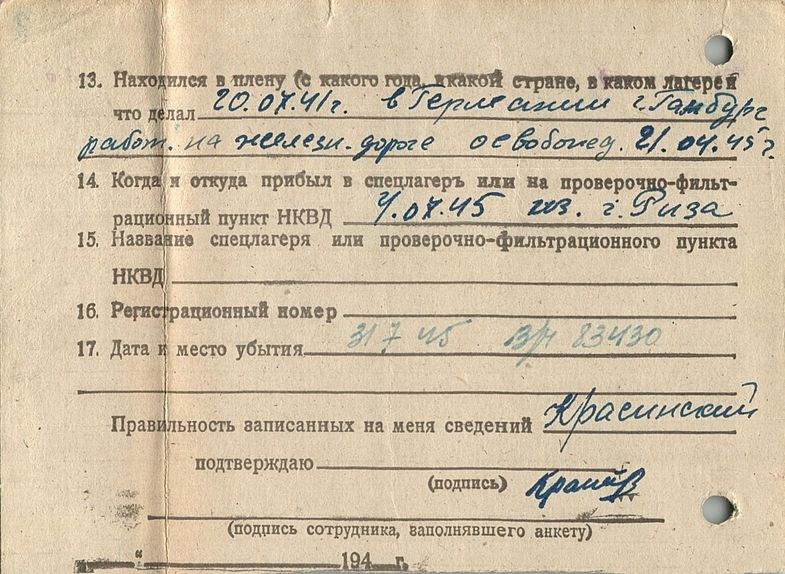 13. Находился в плену (с какого года, в какой стране, в каком лагере и
что делал 20.07.41г. в Германии г. Гамбург
работ. на железн. дороге освобожд. 21.04.45г.
14. Когда и откуда прибыл в спецлагеръ или на проверочно-фильт-
рационный пункт НКВД 4.07.45 из г. Риза
15. Название спецлагеря или проверочно-фильтрационного пункта
НКВД
16. Регистрационный номер
17. Дата и место убытия 31 7 45 В/ч 83430
Правильность записанных на меня сведений Красинский
подтверждаю
(подпись)
(подпись сотрудника, заполнявшего анкету)
„ “ 194 г.